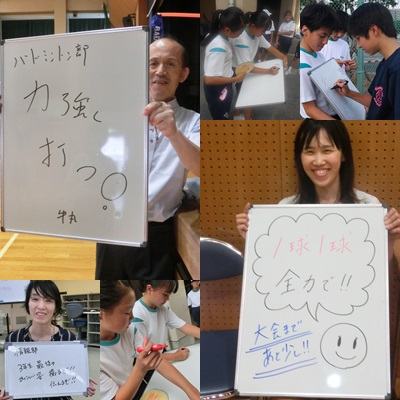 バドミントン部
力強く
打つ!
牛丸
1球1球
全力で!!
大会まで
あと少し!!
3年生 最後の